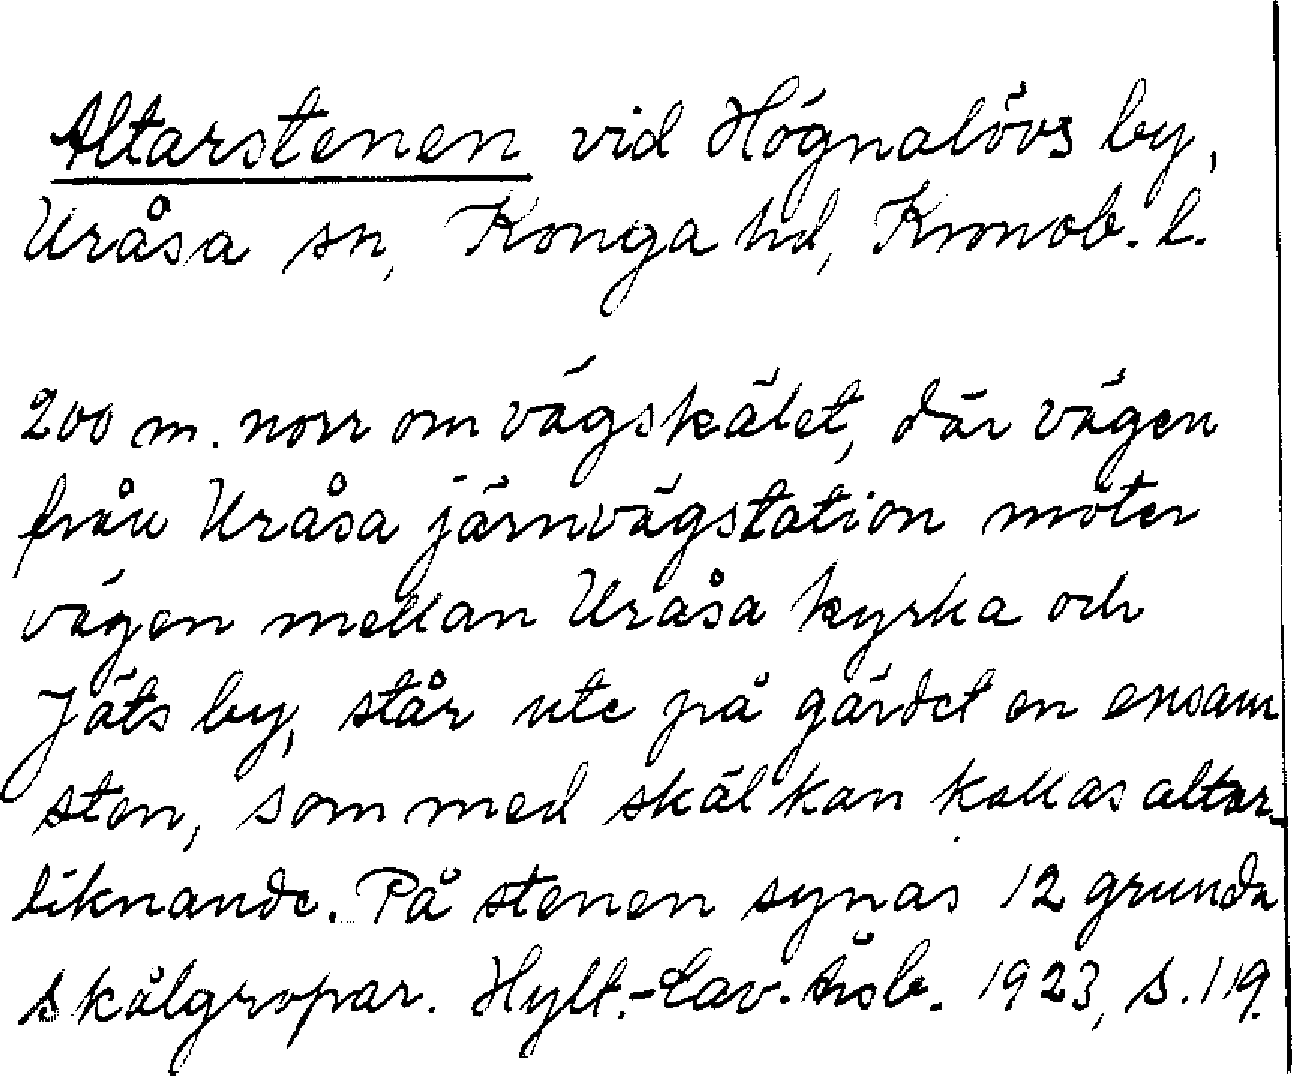 Altarstenen vid Högnalövs by,
Uråsa sn, Konga hd, Kronob. l.
200 m. norr om vägskälet, där vägen
från Uråsa järnvägstation möter
vägen mellan Uråsa kyrka och
Jäts by, står ute på gärdet en ensam
sten, som med skäl kan kallas altar-
liknande. På stenen synas 12 grunda
skålgropar. Hylt.-Cav. årsb. 1923, s. 119.